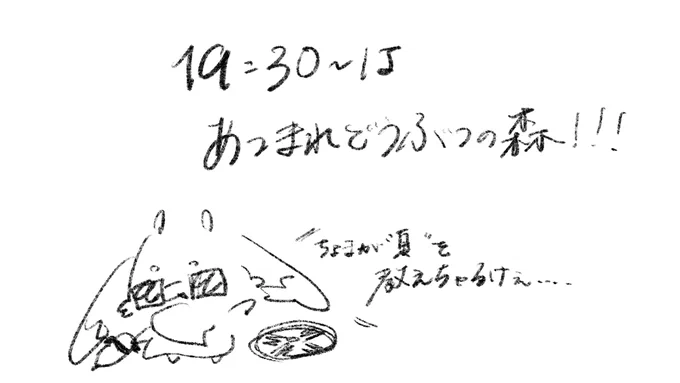 19:30~は
あつまれどうぶつの森!!!
"ちょまが"夏"を
教えちゃるけぇ....